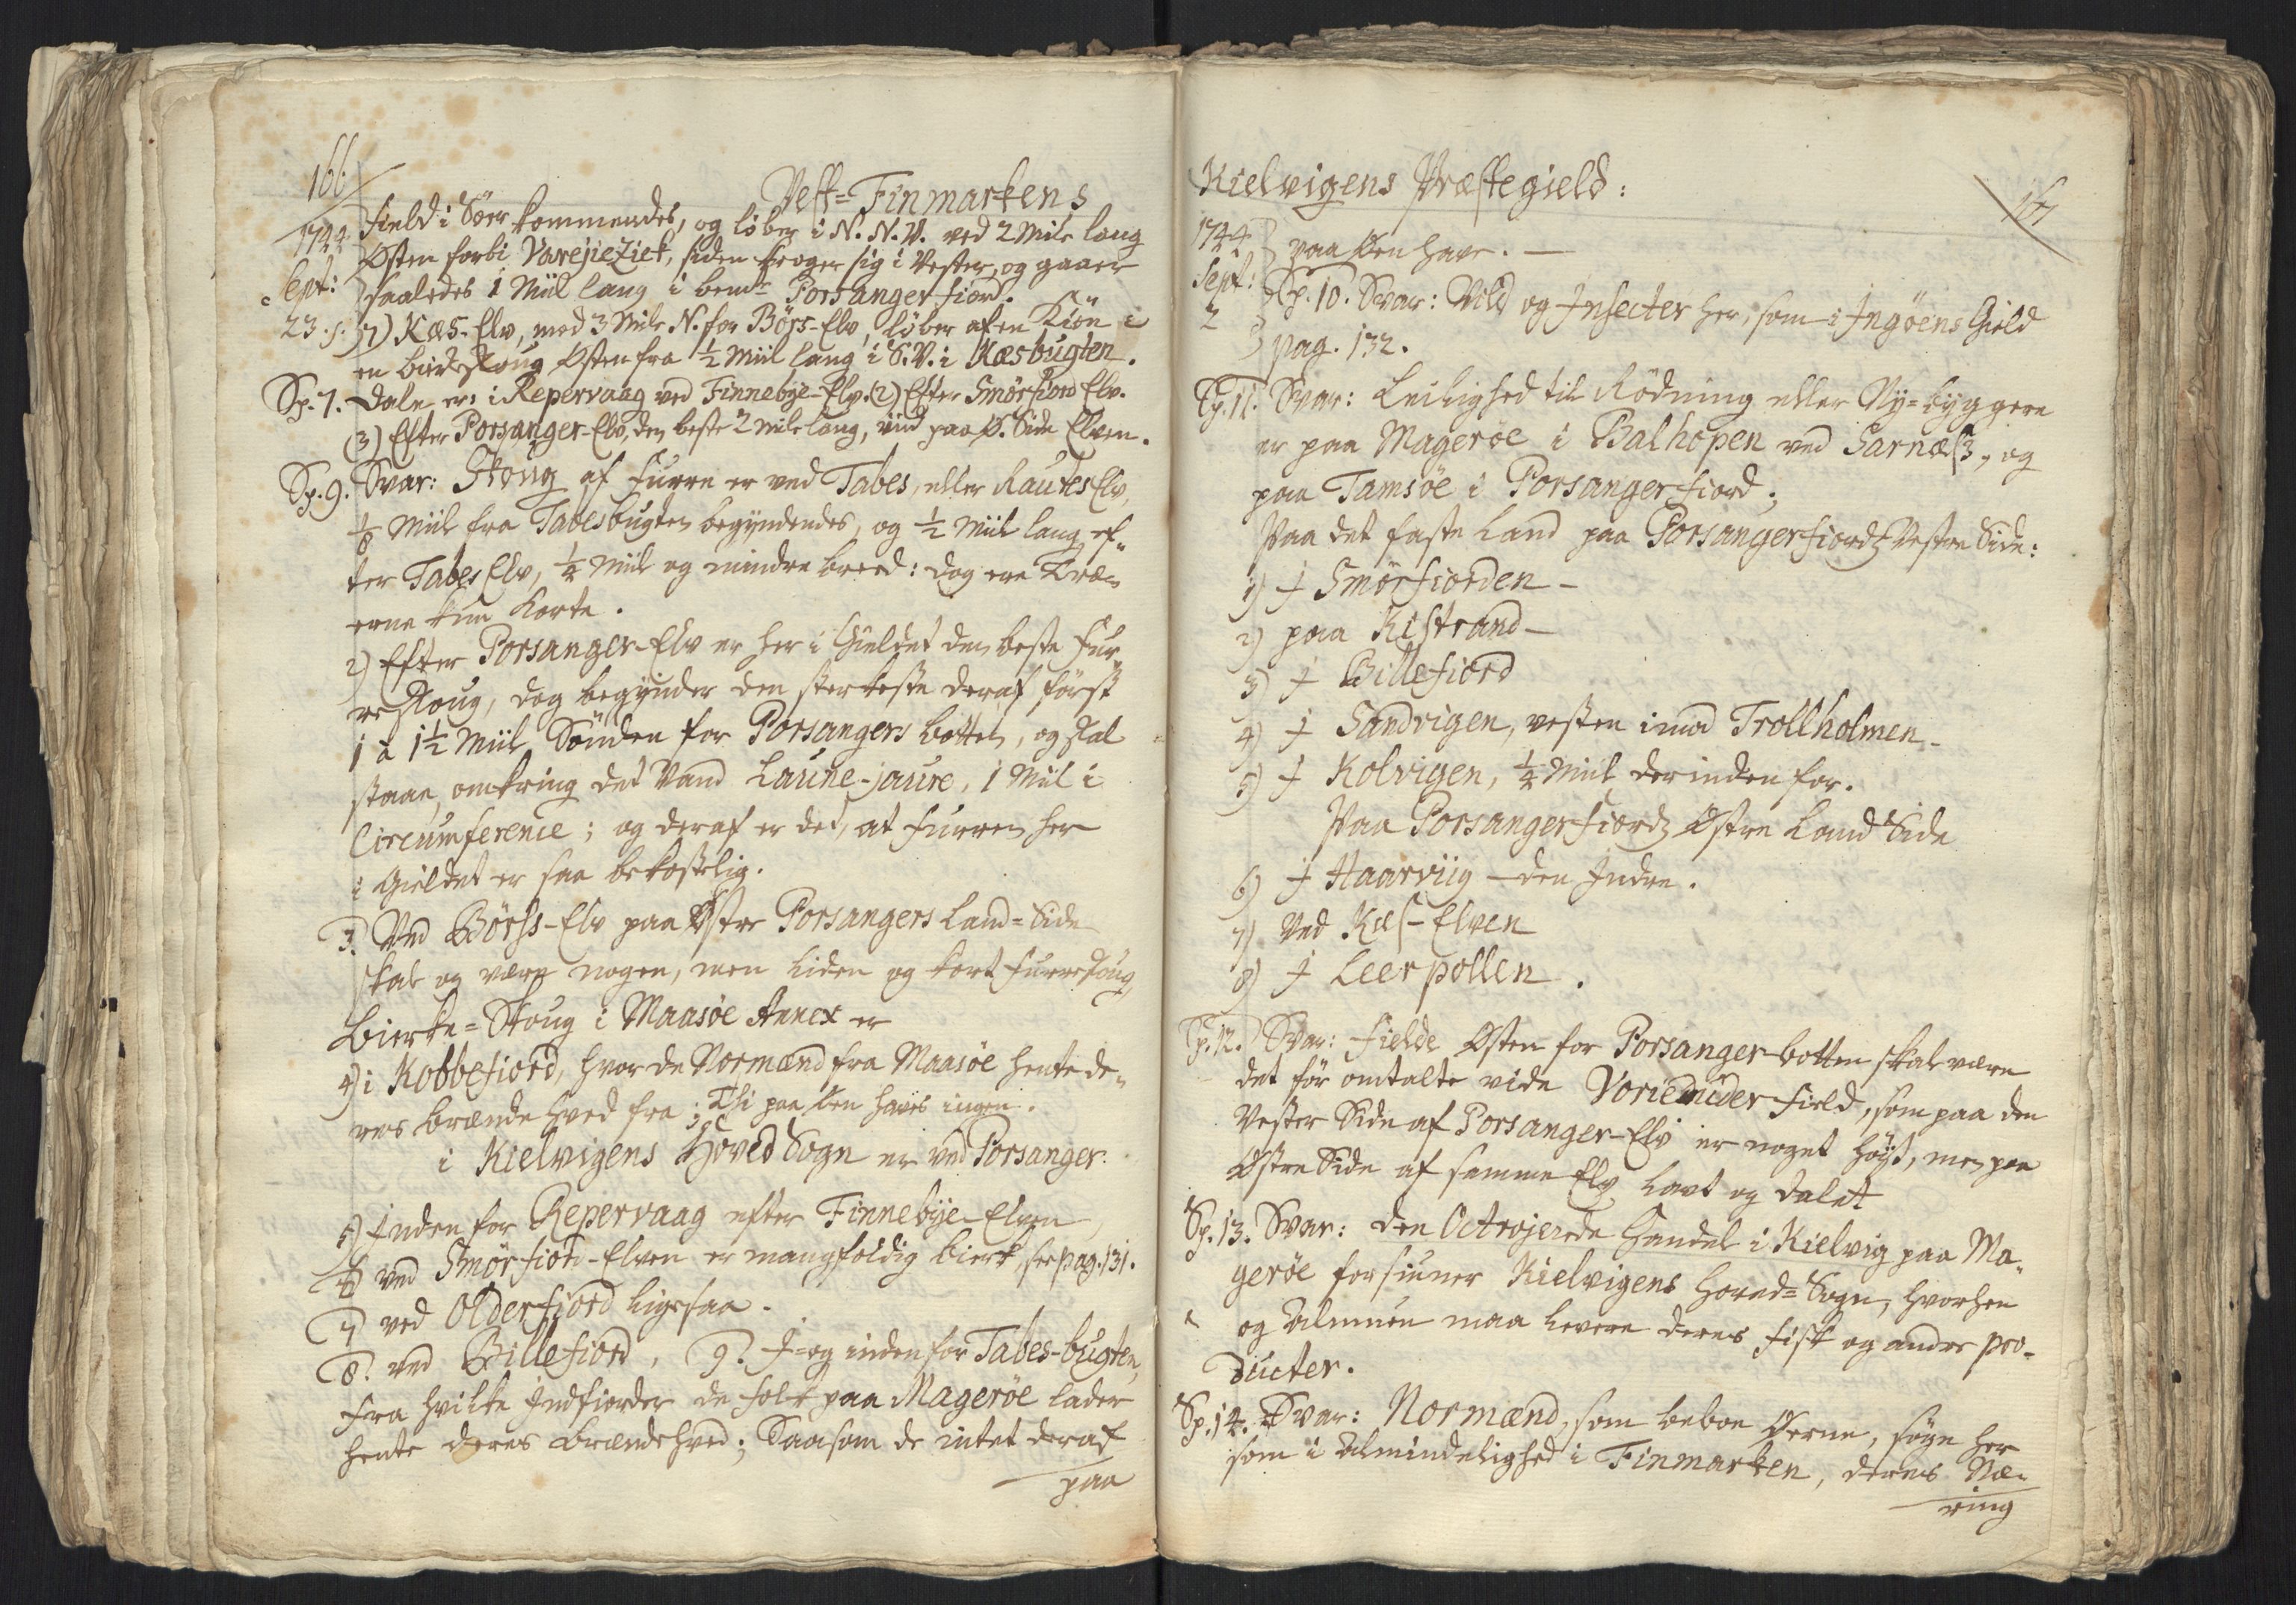 166
Vest-Finmarkens
1744 field i Sør kommendes, og løber i N. N. V. ved 2 Mile lang
Østen forbi Varejieziek, siden kroger sig i Vester, og gaaer
Sept: saaledes 1 Miil lang i bemte Porsanger fiord.
23. 7) Kæs-Elv, med 3 Mile N. for Børs-Elv, løber af en Kiøn i
en birkeskoug Østen fra ½ Miil lang i S.V. i Kæsbugten.
Sp. 7. Dale er: i Repervaag ved Finnebye-Elv. (2) Efter Smørfiord Elv.
(3) Efter Porsanger-Elv, den beste 2 Mile lang, iind paa Ø. Side Elven.
Sp. 9. Svar: Skoug af Furre er ved Tabes, eller Rautes Elv,
⅛ Miil fra Tabesbugten begyndendes, og ½ Miil lang ef-
ter Tabes Elv, ¼ Miil og mindre breed: dog ere Træ-
erne kun korte.
2) Efter Porsanger-Elv er her i Gieldet den beste Fur-
reskoug, dog begynder den sterkeste deraf først
1 à 1½ Miil Sønden for Porsangers botten, og skal
staae, omkring det Vand Laune-jaure, 1 Miil i
Circumference; og deraf er det, at Furren her
i Gieldet er saa bekostelig.
3. Ved Børss-Elv paa Østre Porsangers Land-Side
skal og være nogen, men liden og kort furreskoug,
Bierke-Skoug i Maasøe Annex er
4) i Kobbefiord, hvor de Normænd fra Maasøe hente de-
res brænde hved fra; Thi paa Øen haves ingen.
i Kielvigens Hoved Sogn er ved Porsanger:
5) Inden for Repervaag efter Finnebye-Elven,
6) ved Smørfiord-Elven er mangfoldig bierk, see pag. 131.
7) ved Olderfiord ligesaa.
8. ved Billefiord, 9. I- og inden for Tabes-bugten,
fra hvilke Indfiorder de folk paa Magerøe lader
hente deres brændehved; Saasom de intet deraf
paa
Kielvigens Præstegield:
167
1744 paa Øen have.
Sept: Sp. 10. Svar: Vild og Insecter her, som i Ingøens Gield
pag. 132.
Sp. 11. Svar: Leilighed til Rødning eller Ny-byggere
er paa Magerøe i Balhopen ved Sarnæss, og
paa Tamsøe i Porsangerfiord;
Paa det faste Land paa Porsangerfiords Vestre Side:
1) I Smørfiorden
2) paa Kistrand
3) I Billefiord
4) I Sandvigen, vesten imod Trollholmen
5) I Kolvigen, ¼ Miil derinden for.
Paa Porsangerfiords Østre Land Side
6) I Haarviig den Indre.
7) Ved Kæs-Elven
8) I Leerpollen.
Sp. 12. Svar: Fielde Østen for Porsanger-botten skal være
det før omtalte vide Vorieduder field, som paa den
Vester Side af Porsanger-Elv er noget høyt, men paa
Østre Side af samme Elv lavt og dalet
Sp. 13. Svar: Den Octrojerede Handel i Kielvig paa Ma-
gerøe forsiuner Kielvigens Hoved-Sogn, hvorhen
og Almuen maa levere deres fisk og andre pro-
ducter.
Sp. 14. Svar: Normænd, som beboe Øerne, søge her
som i Almindelighed i Finmarken, deres Næ-
ring